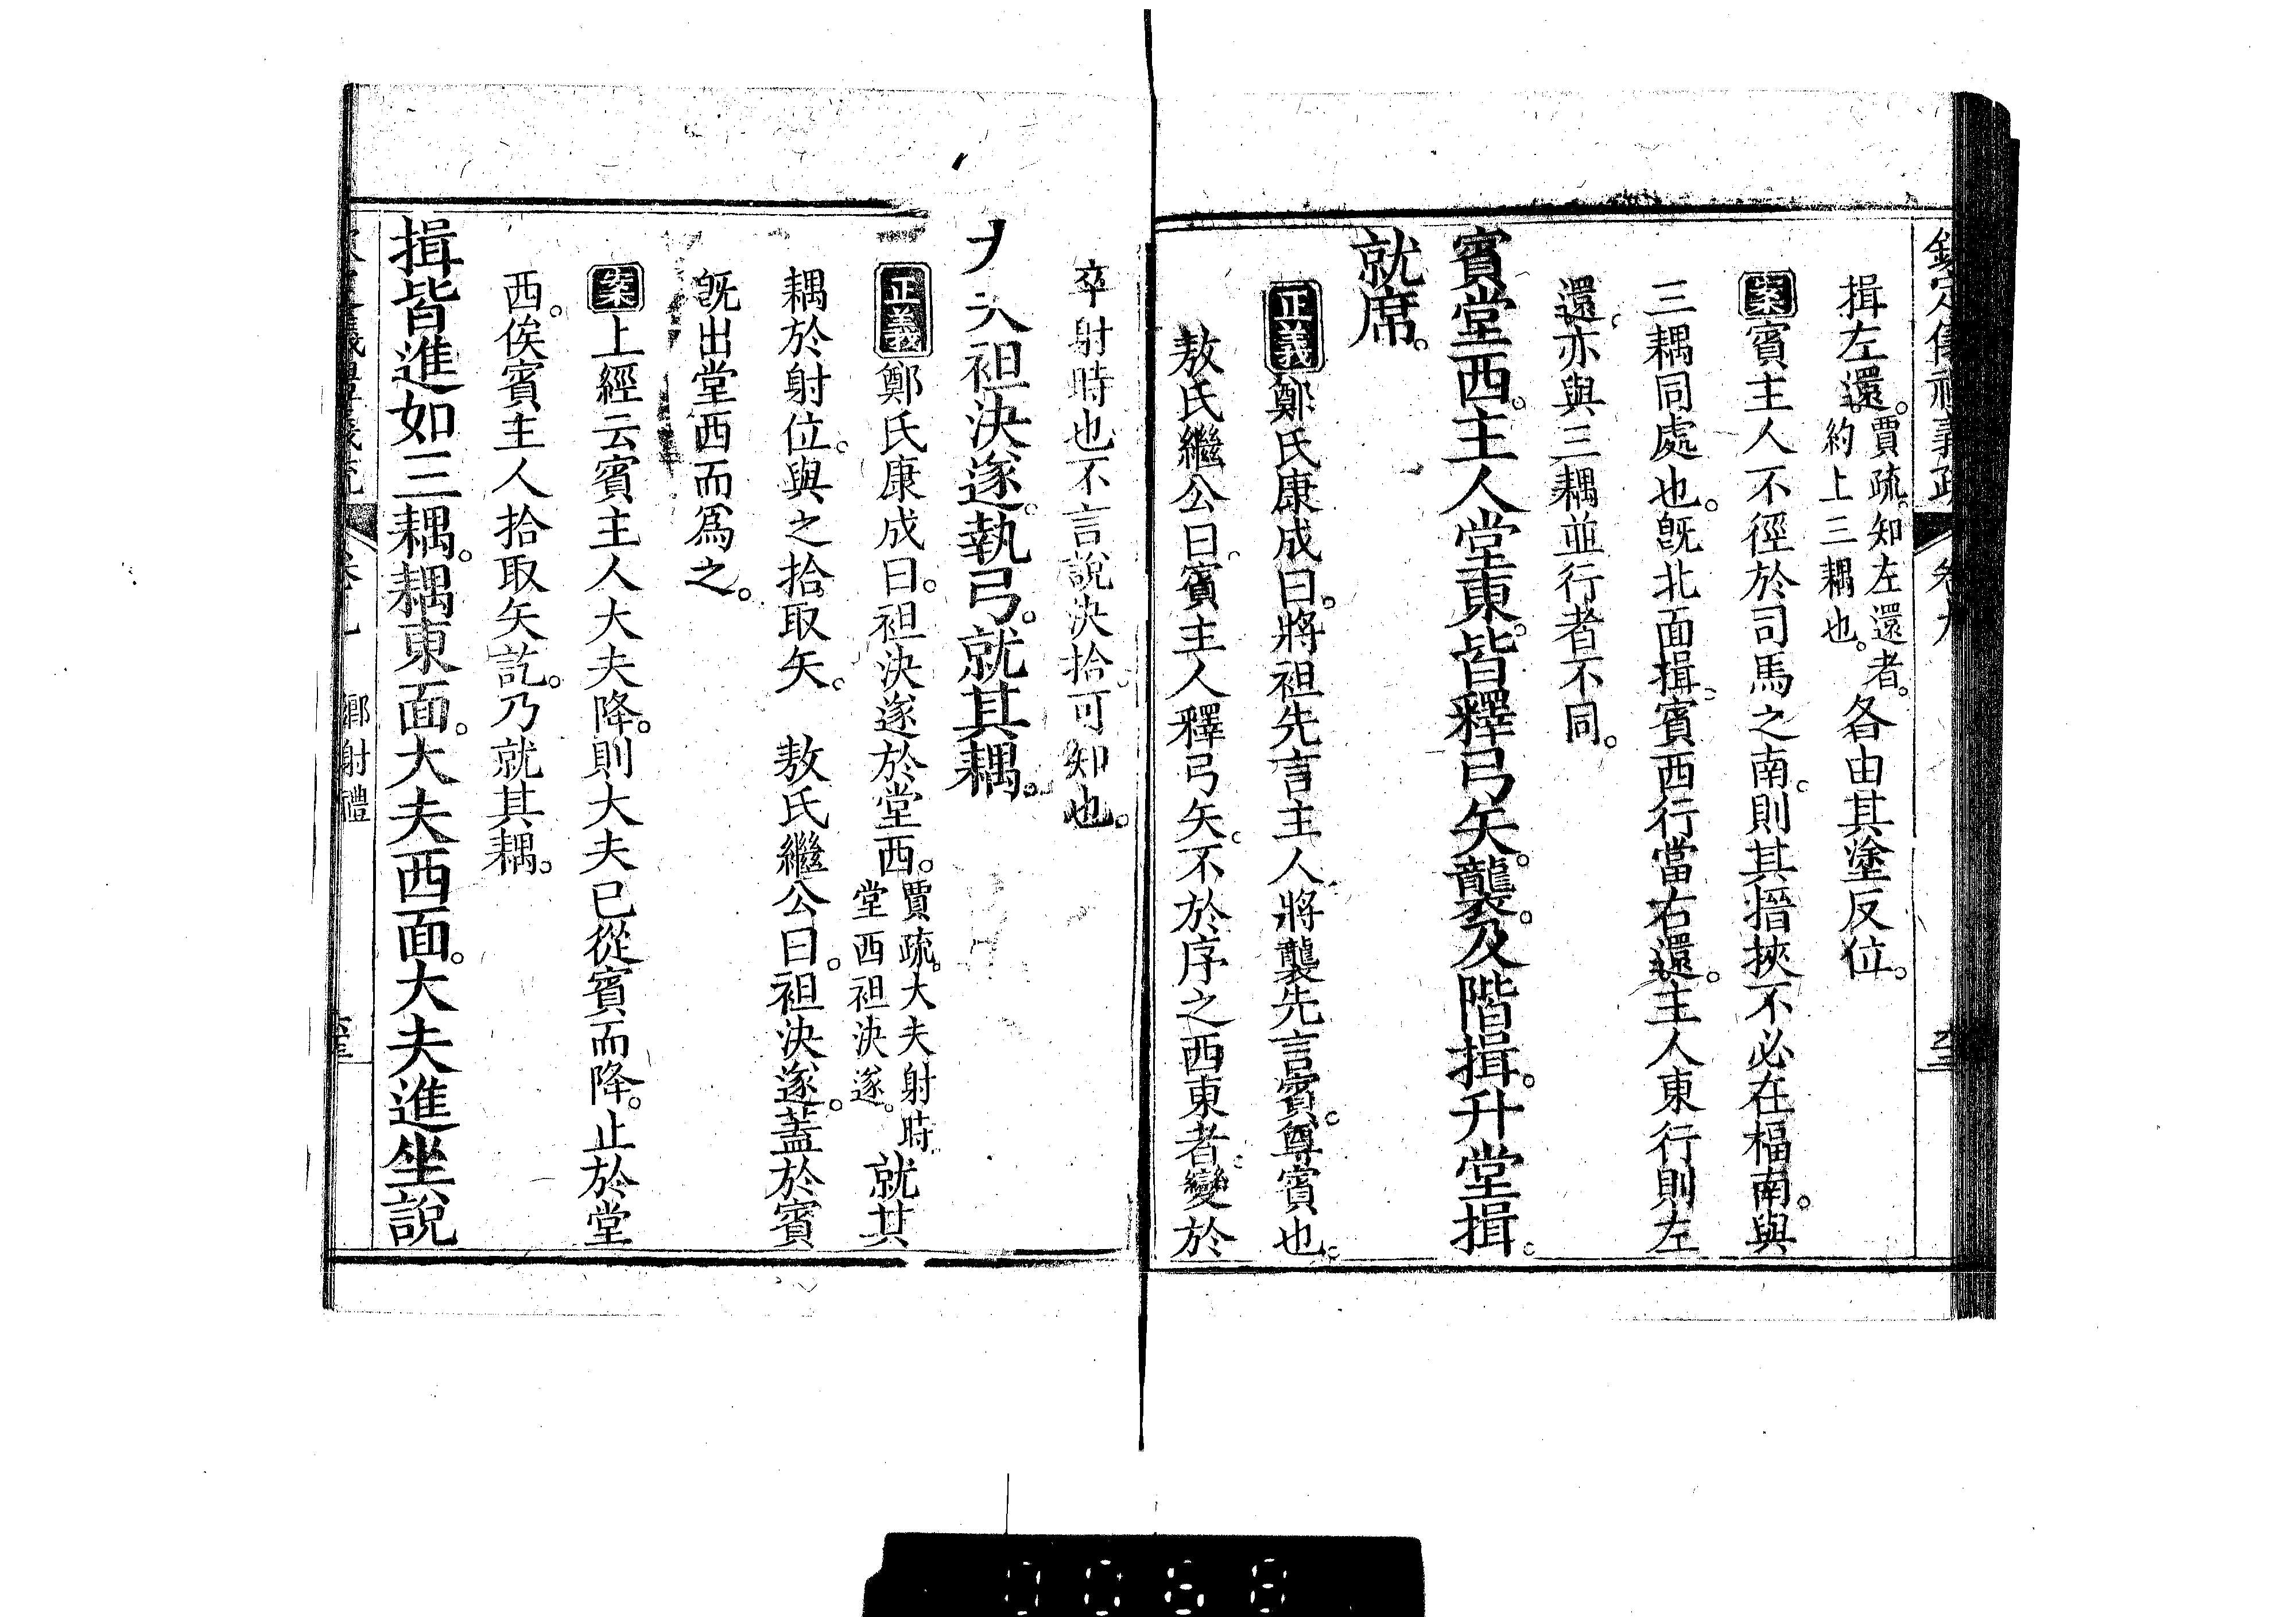 欽定儀禮義疏 卷九
揖左還。賈疏。知左還者。約上三耦也。各由其塗反位。
案賓主人不徑於司馬之南。則其搢挾不必在楅南。與
三耦同處也。旣北面揖。賓西行當右還。主人東行則左
還。亦與三耦並行者不同。
賓堂西。主人堂東。皆釋弓矢。襲。及階揖。升堂揖。
就席。
正義鄭氏康成曰。將袒先言主人。將襲先言賓。尊賓也。
敖氏繼公曰。賓主人釋弓矢。不於序之西東者。變於
卒射時也。不言說決拾。可知也。
袒決遂。執弓。就其耦。
正義鄭氏康成曰。袒決遂於堂西。賈疏。大夫射時。堂西袒決遂。就其
耦於射位。與之拾取矢。 敖氏繼公曰。袒決遂。蓋於賓
旣出堂西而爲之。
案上經云賓主人大夫降。則大夫已從賓而降。止於堂
西。俟賓主人拾取矢訖。乃就其耦。
揖皆進如三耦。耦東面。大夫西面。大夫進坐說
鄉射禮